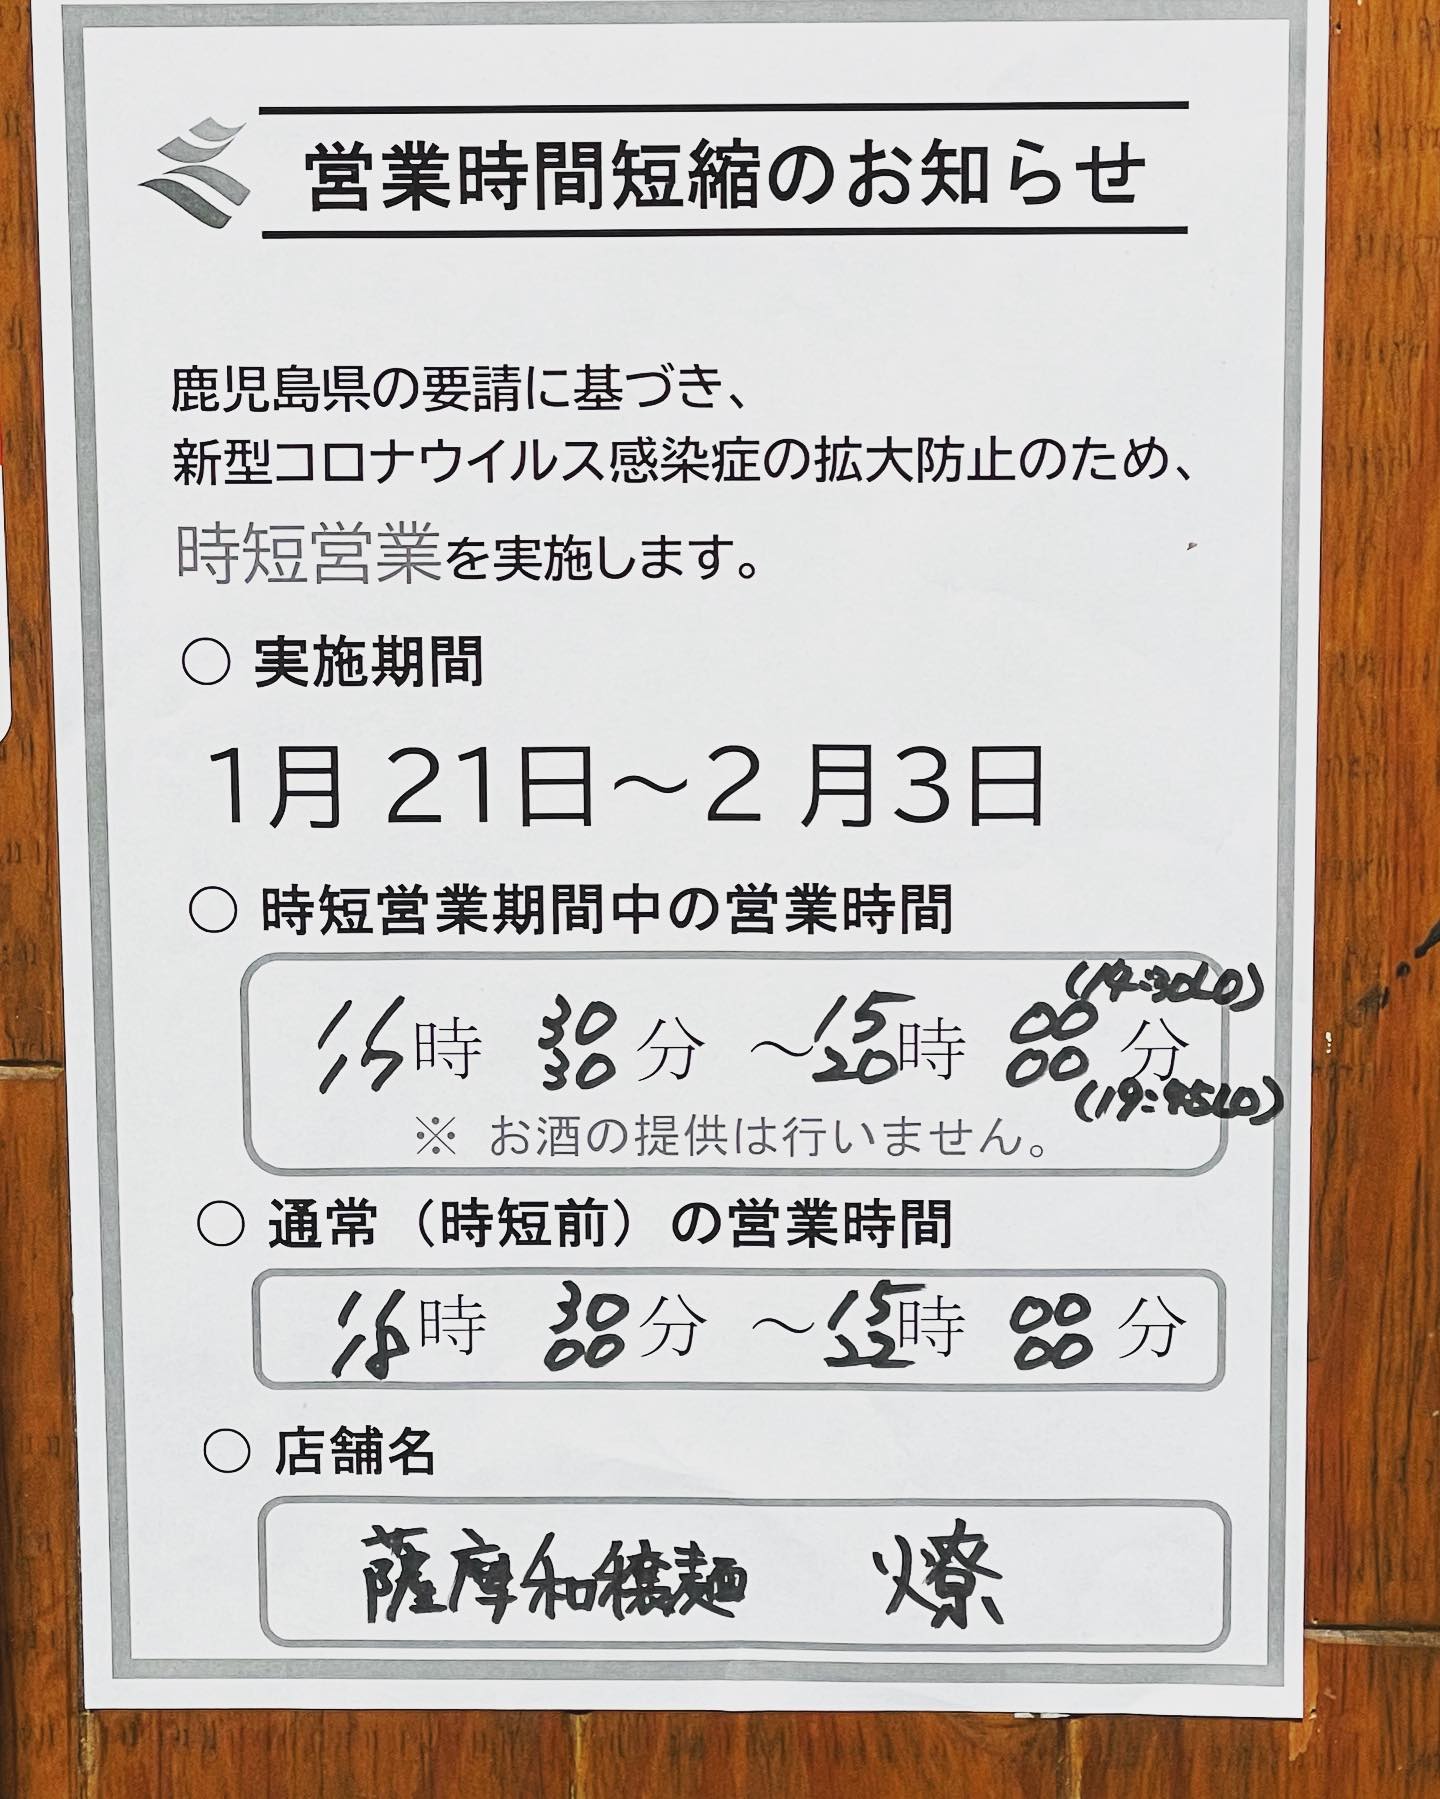 営業時間短縮のお知らせ
鹿児島県の要請に基づき、
新型コロナウイルス感染症の拡大防止のため、
時短営業を実施します。
○ 実施期間
1月 21日～2 月3日
○ 時短営業期間中の営業時間
(14:30LO)
11 30 15 00
時 分 ～ 時 分
17 30 20 00
(19:45LO)
※ お酒の提供は行いません。
○ 通常（時短前）の営業時間
11 30 15 00
時 分 ～ 時 分
18 00 22 00
○ 店舗名
薩摩和穣麺 燎